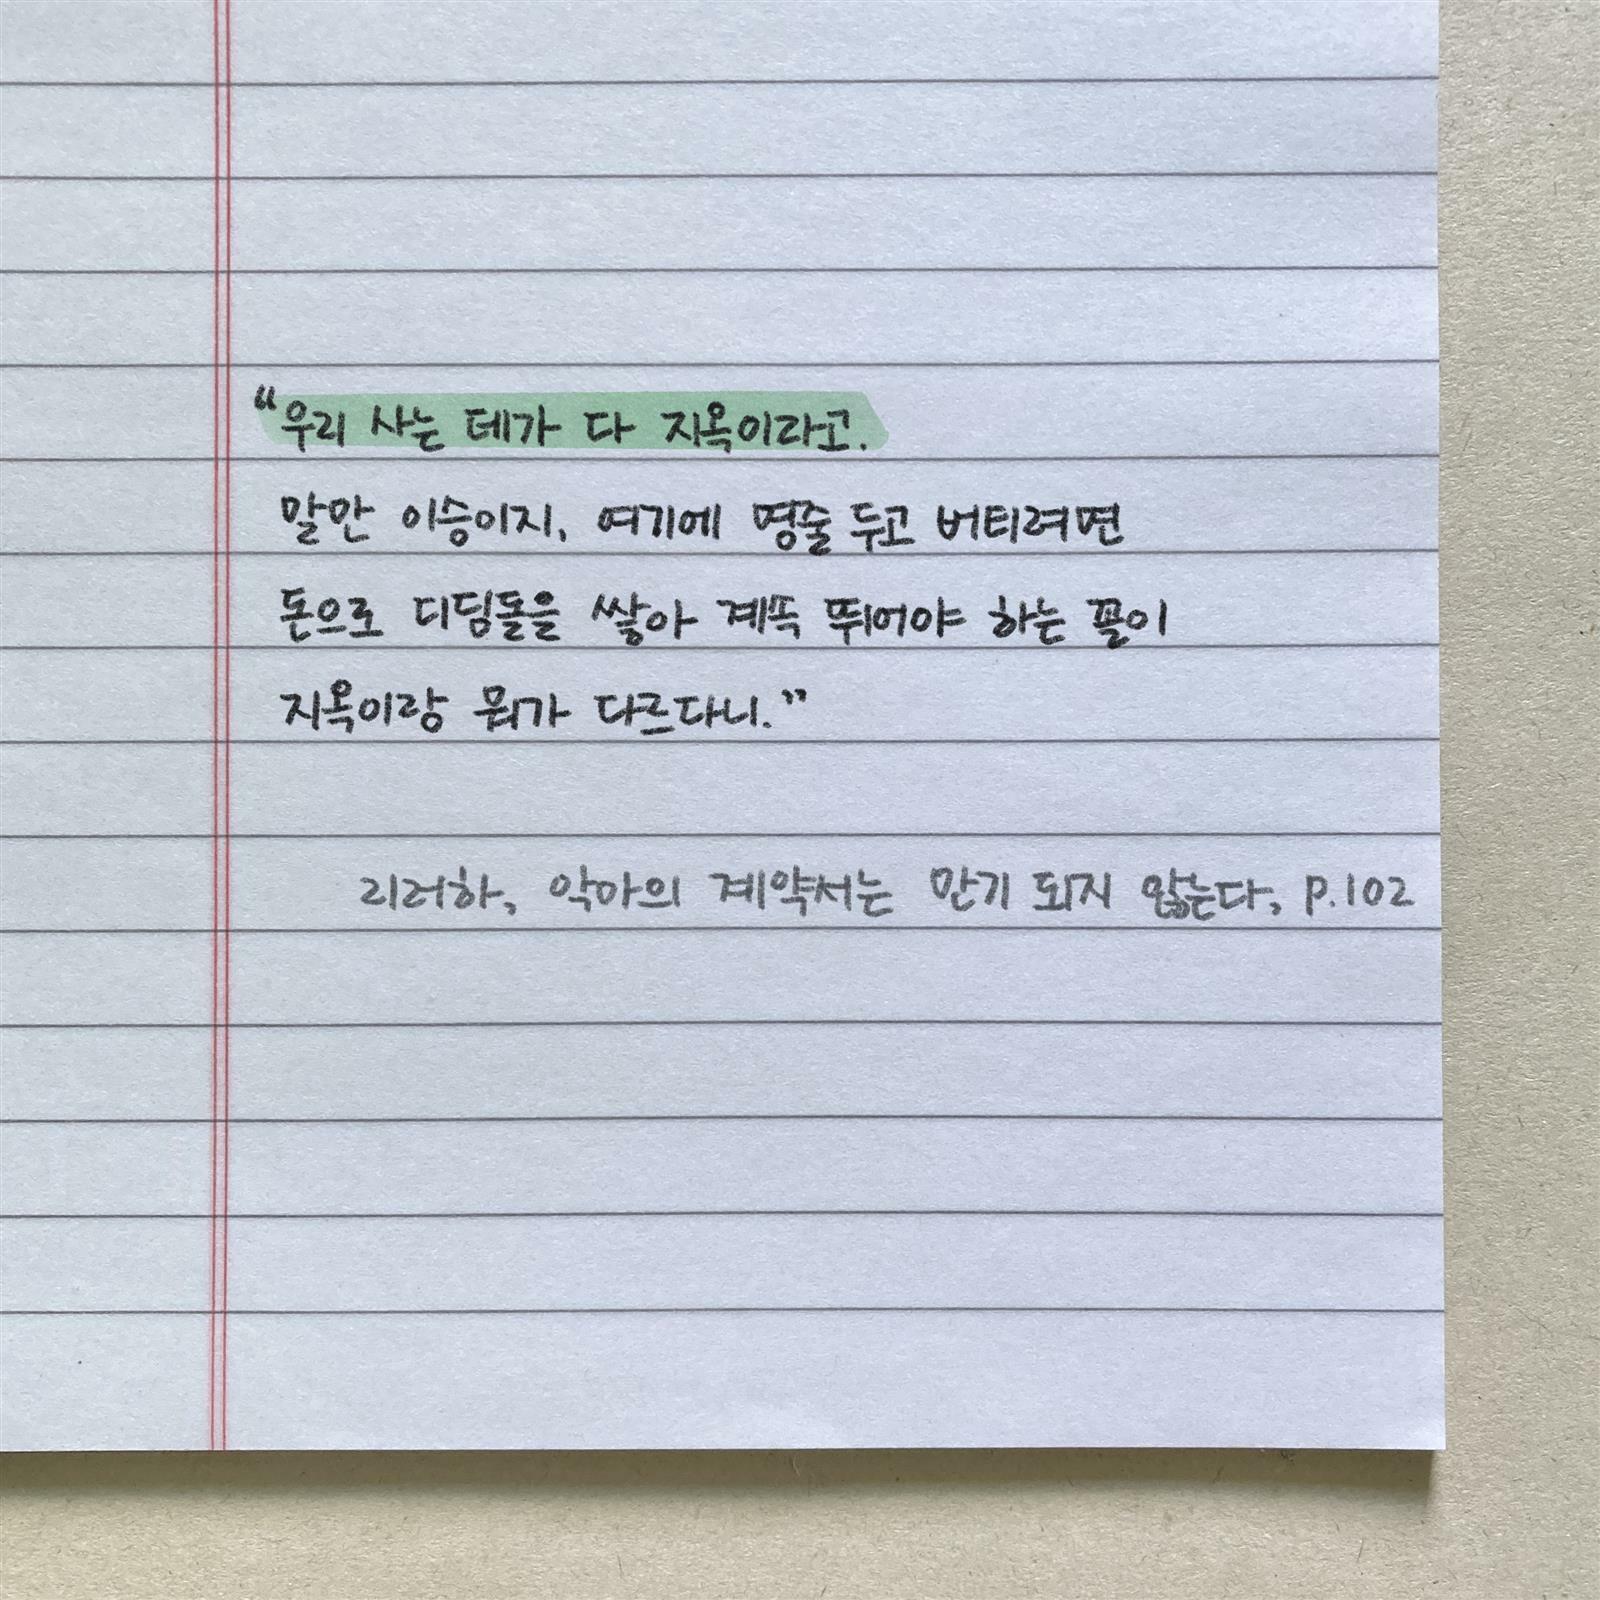 “우리 사는 데가 다 지옥이라고.
말만 이승이지, 여기에 명줄 두고 버티려면
돈으로 디딤돌을 쌓아 계속 뛰어야 하는 꼴이
지옥이랑 뭐가 다르다니.”
리러하, 악마의 계약서는 만기 되지 않는다, p.102